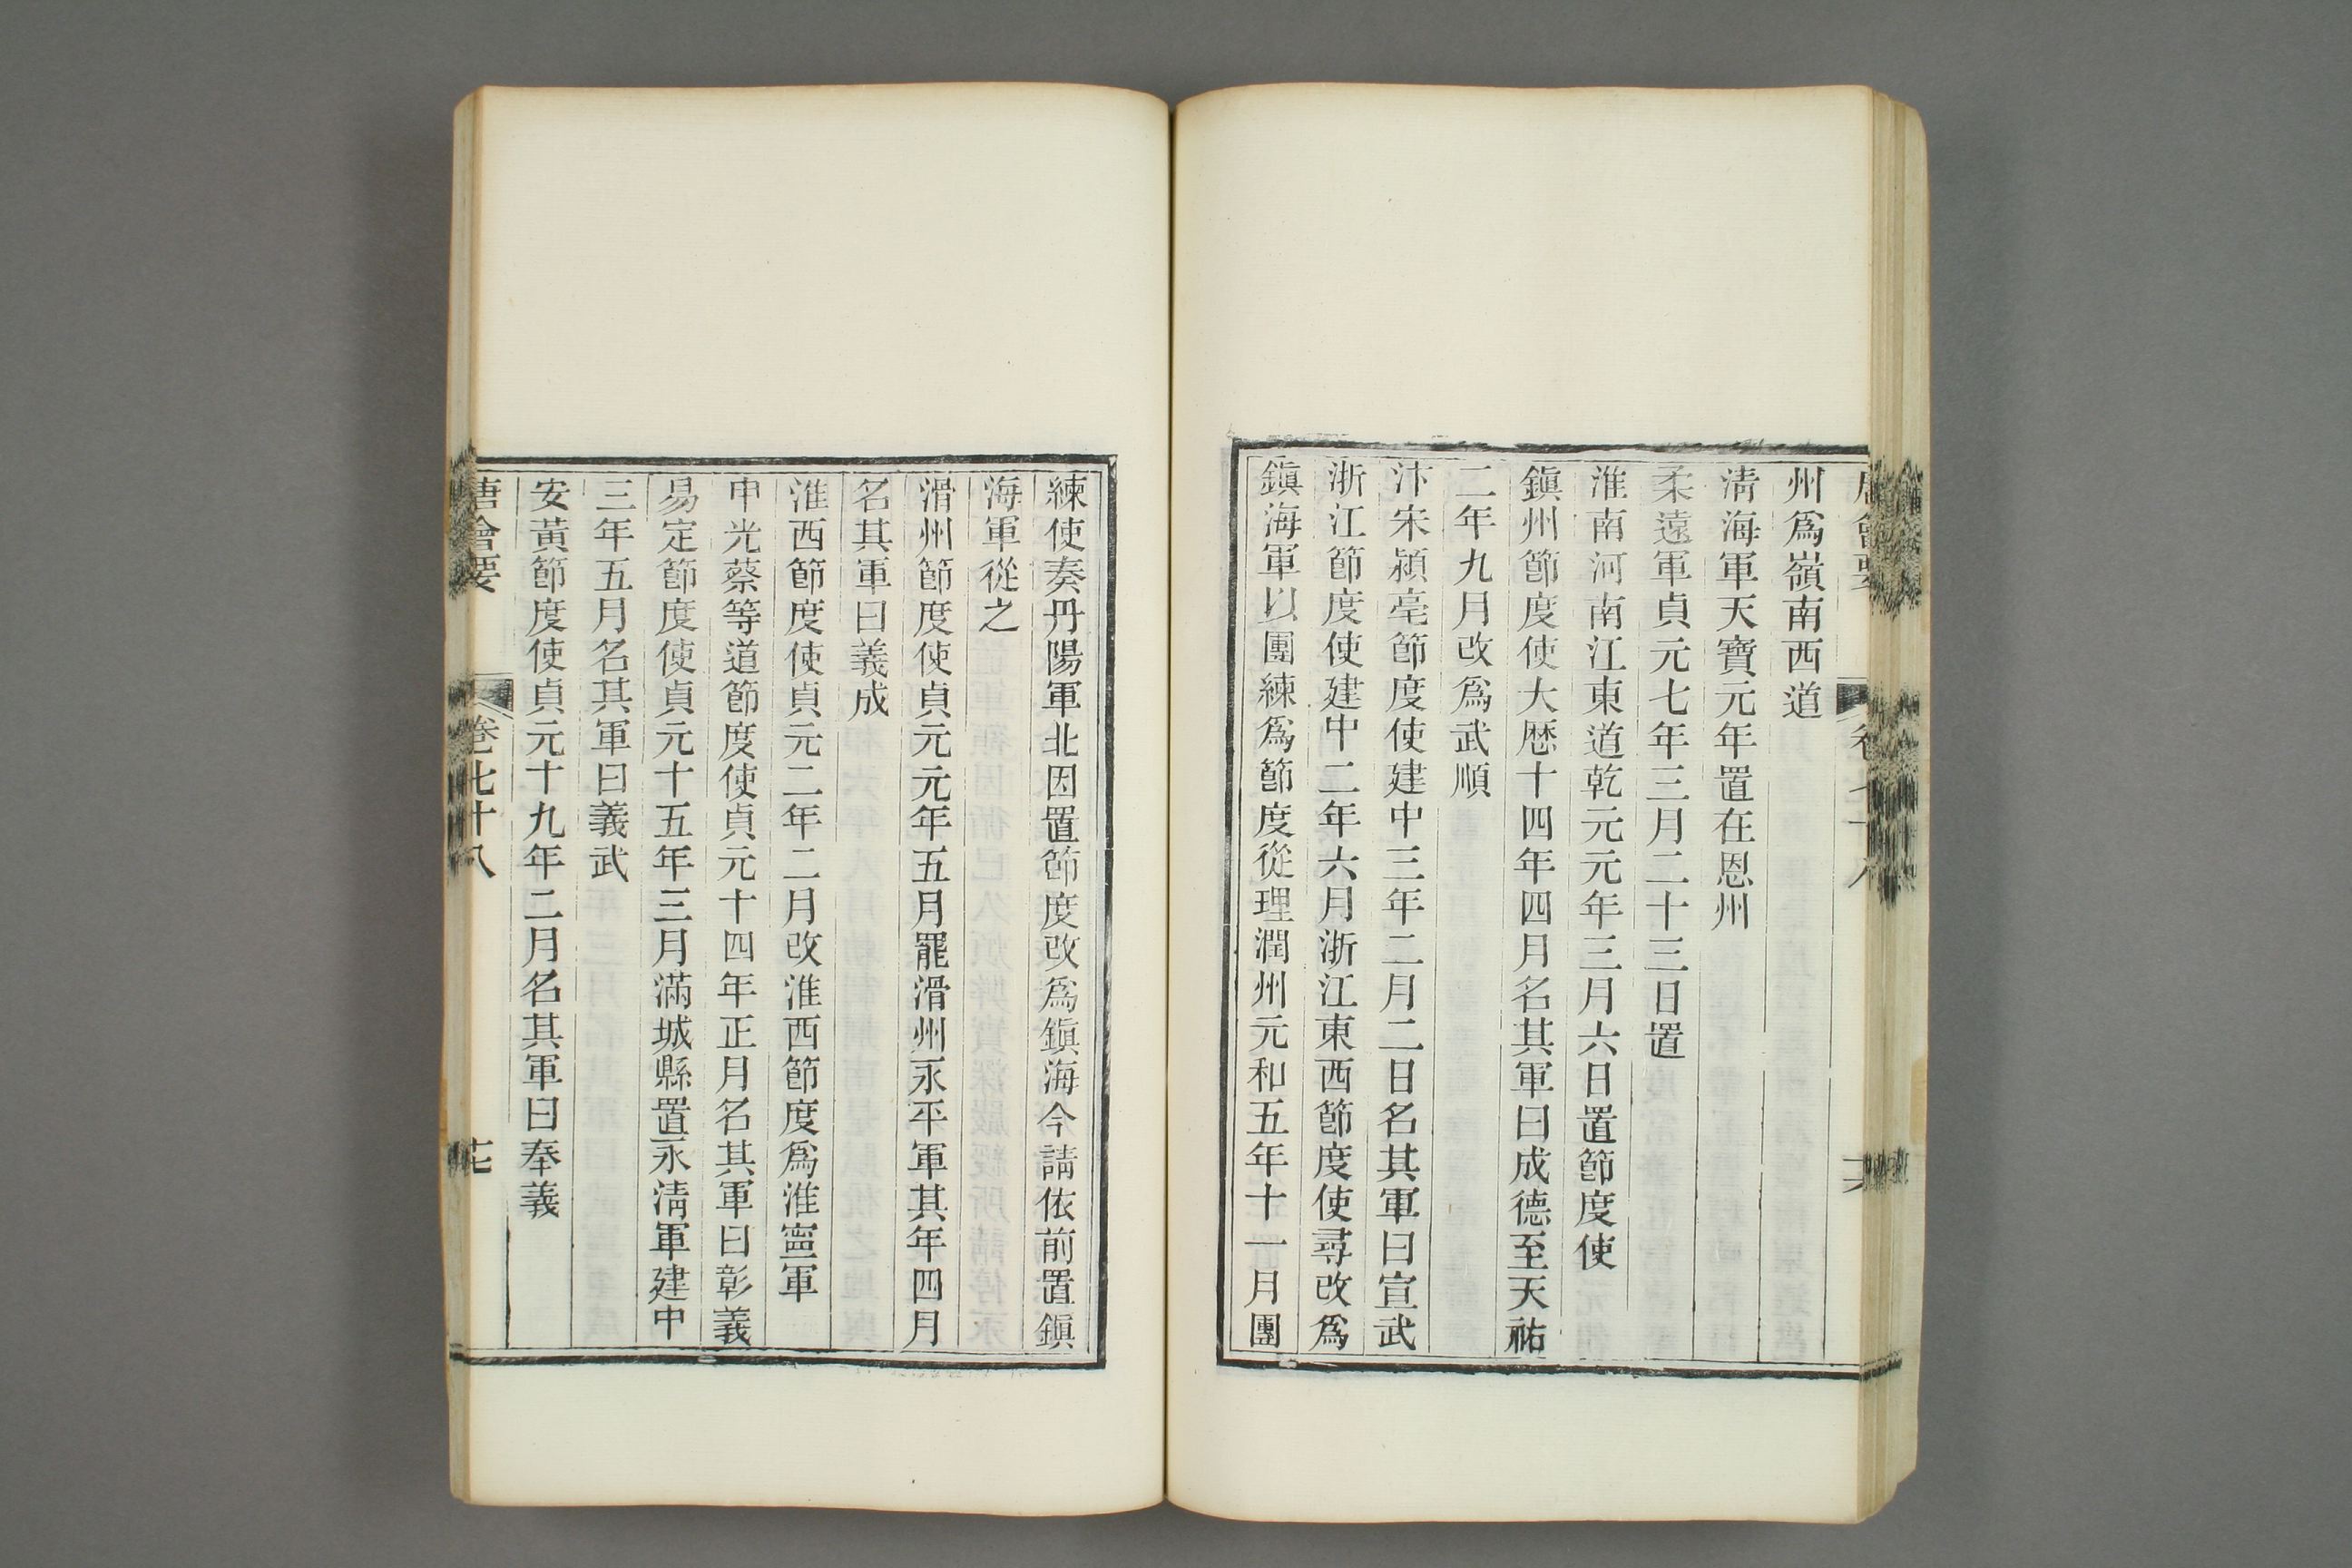 唐會要 卷七十八 十六
州爲嶺南西道
淸海軍天寶元年置在恩州
柔遠軍貞元七年三月二十三日置
淮南河南江東道乾元元年三月六日置節度使
鎭州節度使大歷十四年四月名其軍曰成德至天祐
二年九月改爲武順
汴宋潁亳節度使建中三年二月二日名其軍曰宣武
浙江節度使建中二年六月浙江東西節度使尋改爲
鎭海軍以團練爲節度從理潤州元和五年十一月團
練使奏丹陽軍北因置節度改爲鎭海今請依前置鎭
海軍從之
滑州節度使貞元元年五月罷滑州永平軍其年四月
名其軍曰義成
淮西節度使貞元二年二月改淮西節度爲淮寧軍
申光蔡等道節度使貞元十四年正月名其軍曰彰義
易定節度使貞元十五年三月滿城縣置永淸軍建中
三年五月名其軍曰義武
安黃節度使貞元十九年二月名其軍曰奉義
唐會要 卷七十八 十七